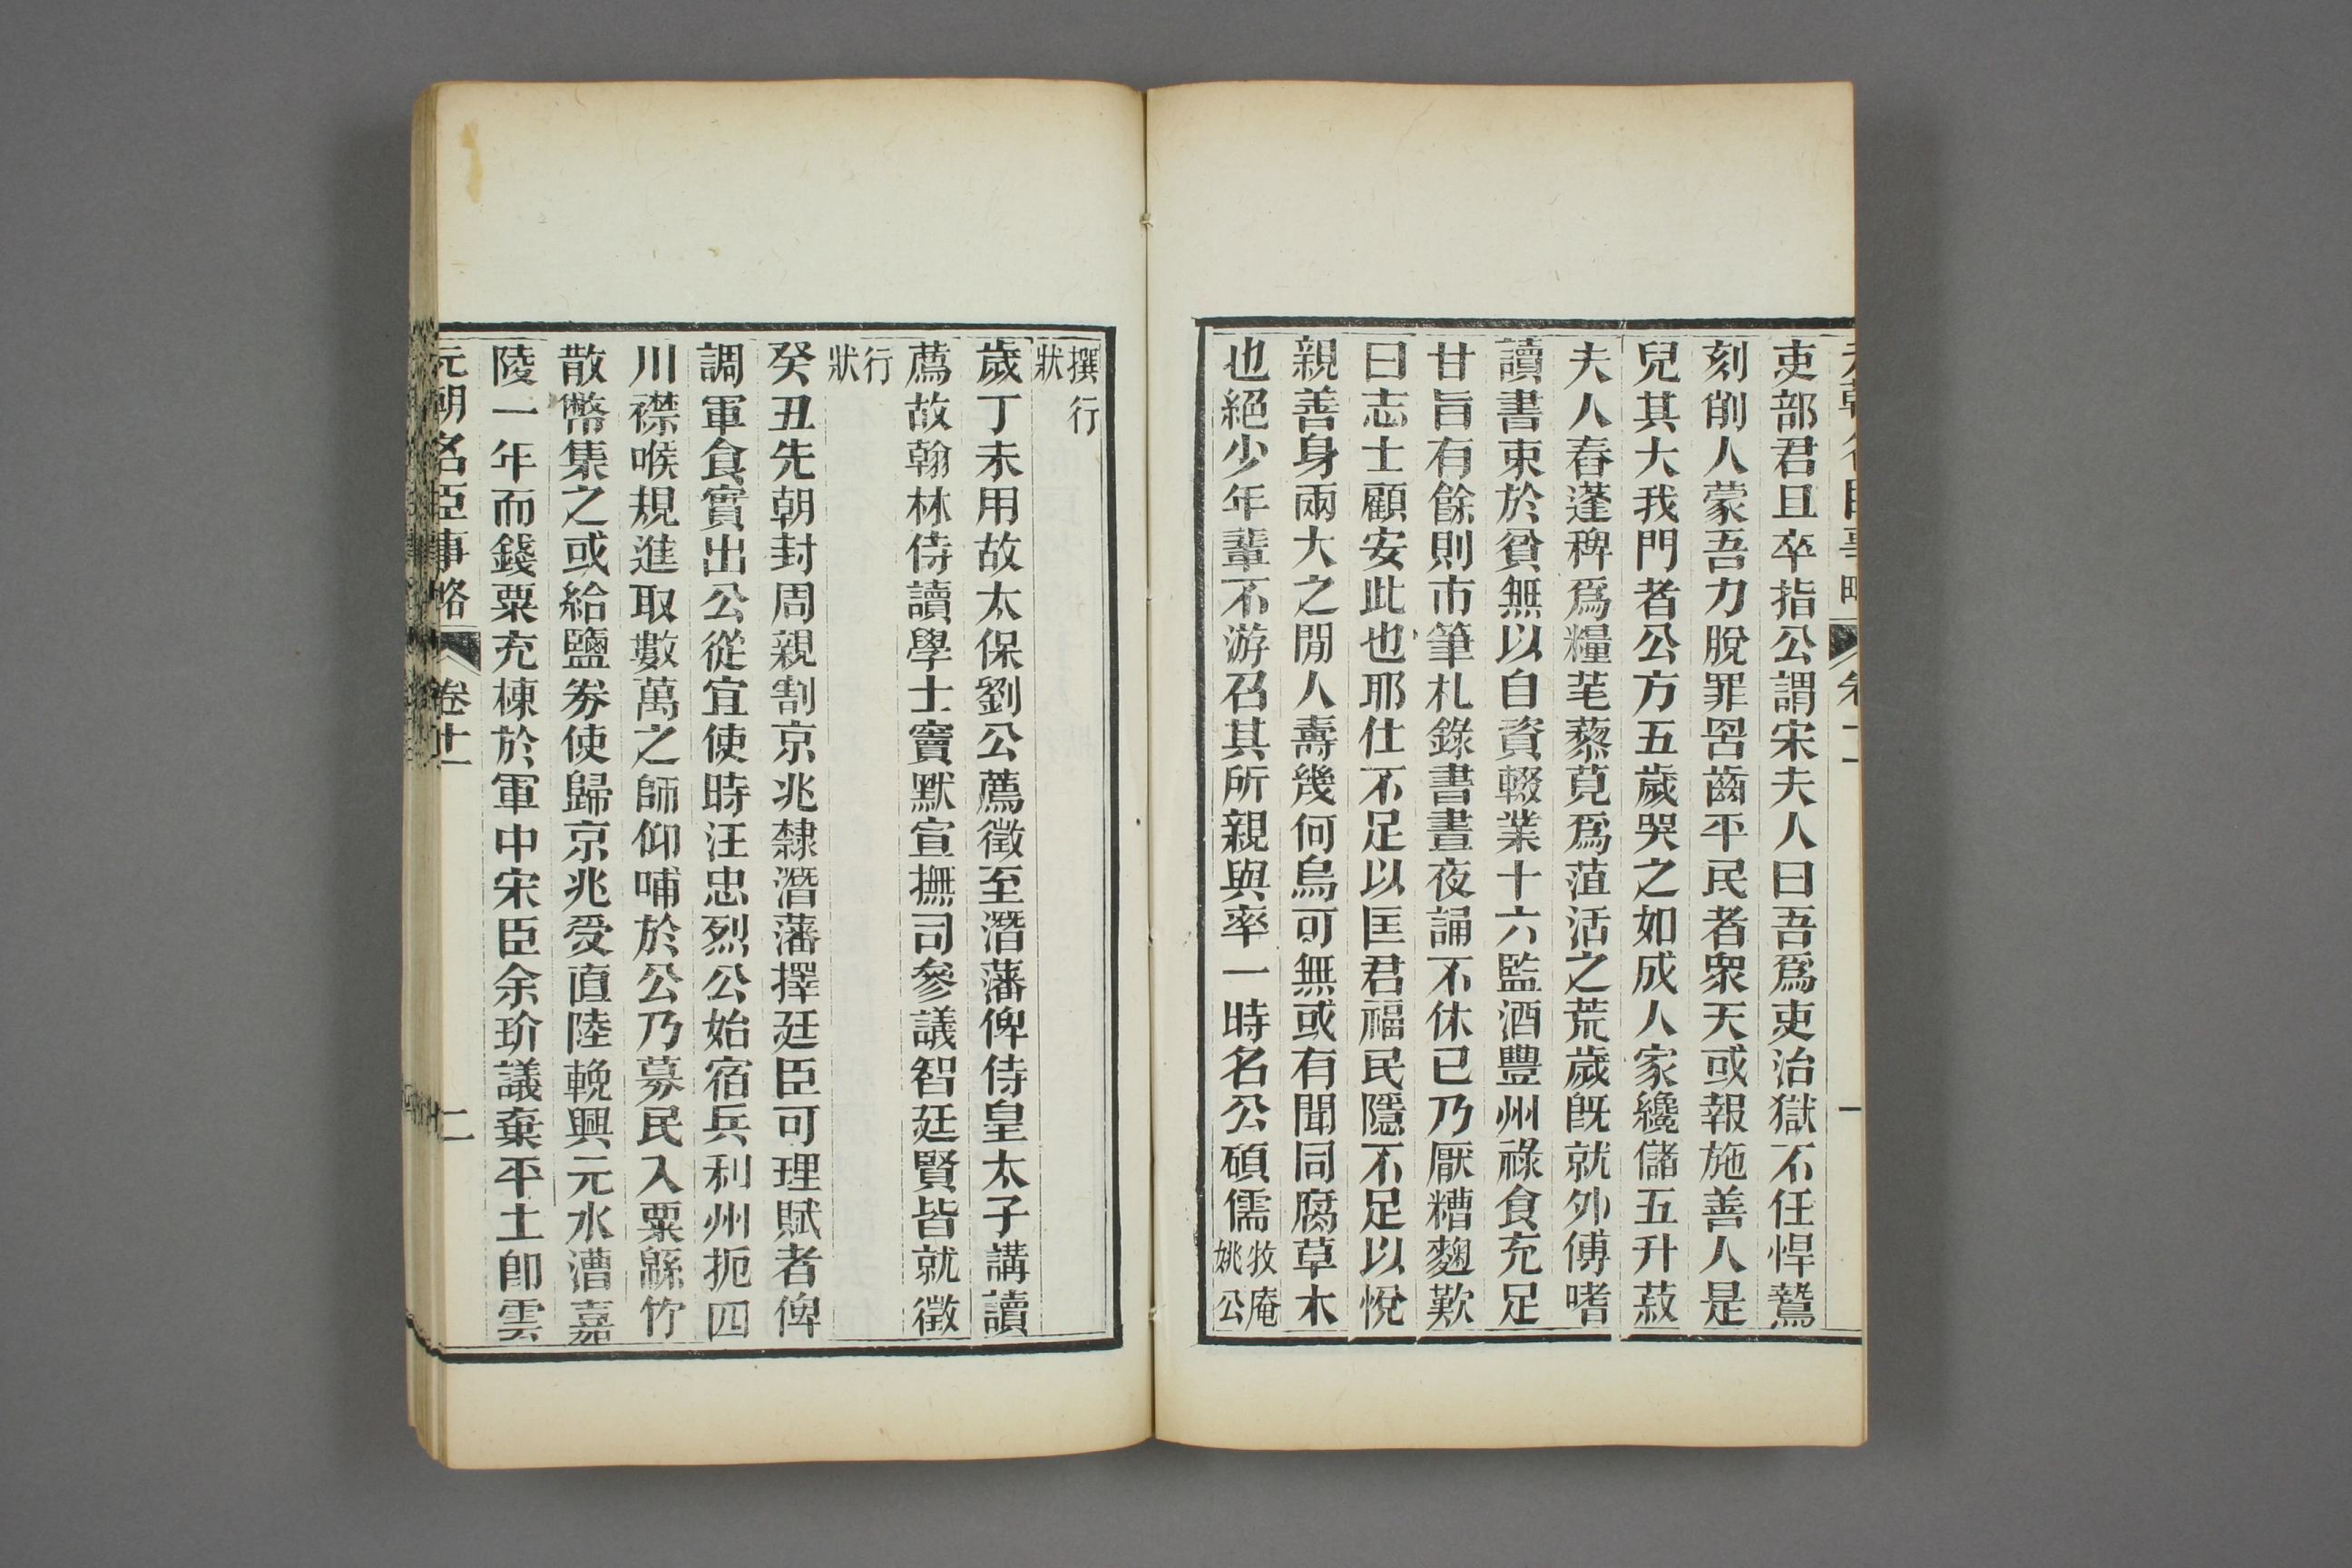 吏部君且卒指公謂宋夫人曰吾爲吏治獄不任悍鷙
刻削人蒙吾力脫罪罟齒平民者衆天或報施善人是
兒其大我門者公方五歲哭之如成人家纔儲五升菽
夫人舂蓬稗爲糧芼藜莧爲菹活之荒歲旣就外傅嗜
讀書束於貧無以自資輟業十六監酒豐州祿食充足
甘旨有餘則市筆札錄書晝夜誦不休已乃厭糟麴歎
曰志士顧安此也耶仕不足以匡君福民隱不足以悅
親善身兩大之閒人壽幾何烏可無或有聞同腐草木
也絕少年輩不游召其所親與率一時名公碩儒牧庵姚公
撰行狀
歲丁未用故太保劉公薦徵至潛藩俾侍皇太子講讀
薦故翰林侍讀學士竇默宣撫司參議智迂賢皆就徵
行狀
癸丑先朝封周親割京兆隸潛藩擇廷臣可理賦者俾
調軍食實出公從宜使時汪忠烈公始宿兵利州扼四
川襟喉規進取數萬之師仰哺於公乃募民入粟緜竹
散幣集之或給鹽券使歸京兆受直陸輓興元水漕嘉
陵一年而錢粟充棟於軍中宋臣余玠議棄平土卽雲
元朝名臣事略 卷十一 二